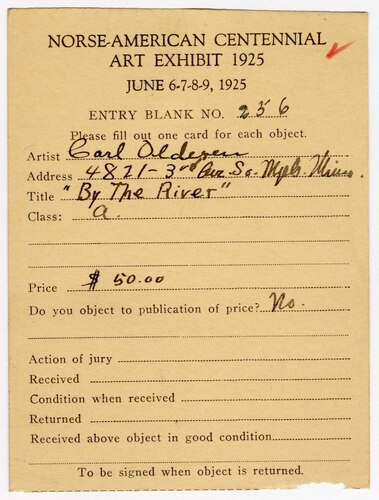 NORSE-AMERICAN CENTENNIAL
ART EXHIBIT 1925
JUNE 6-7-8-9, 1925
ENTRY BLANK NO. 256
Please fill out one card for each object.
Artist Carl
Address 4821-3rd Ave So. Mpls. Minn.
Title "By The River"
Class: a.
Price $ 50.00
Do you object to publication of price? No.
Action of jury
Received
Condition when received
Returned
Received above object in good condition
To be signed when object is returned.